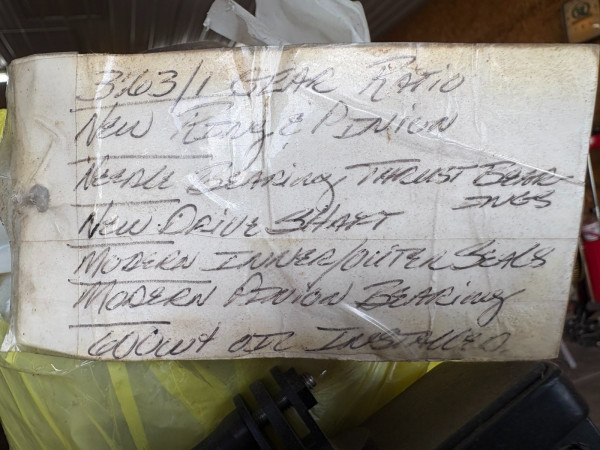 3:63/1 GEAR RATIO
NEW RING & PINION
NEEDLE BEARING THRUST BEAR-
INGS
NEW DRIVE SHAFT
MODERN INNER/OUTER SEALS
MODERN PINION BEARING
600WT OIL INSTALLED